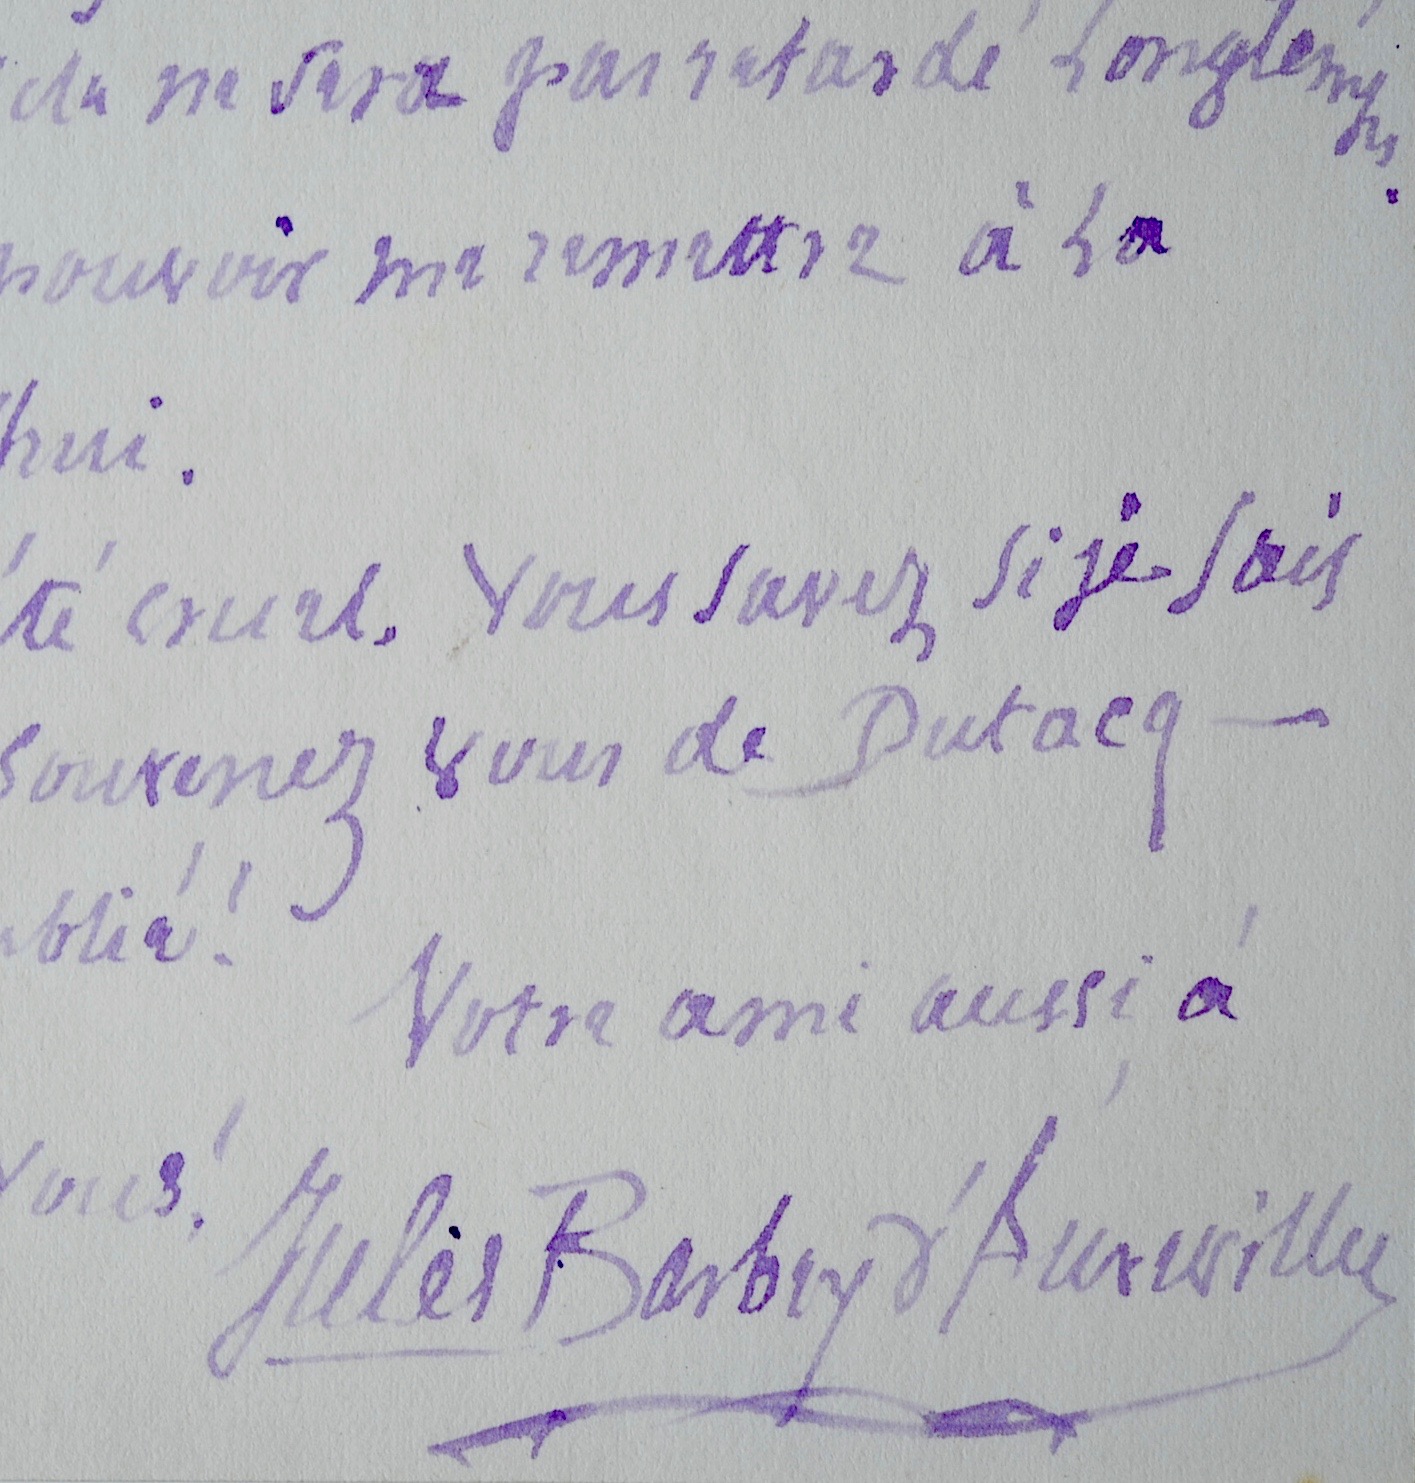 cela ne sera pas retardé longtemps.
pouvoir me remettre à la
hui.
té cruel. Vous savez si je sais
souvenez vous de Dutacq —
ublié!
Votre ami aussi à
vous!
Jules Barbey d'Aurevilly